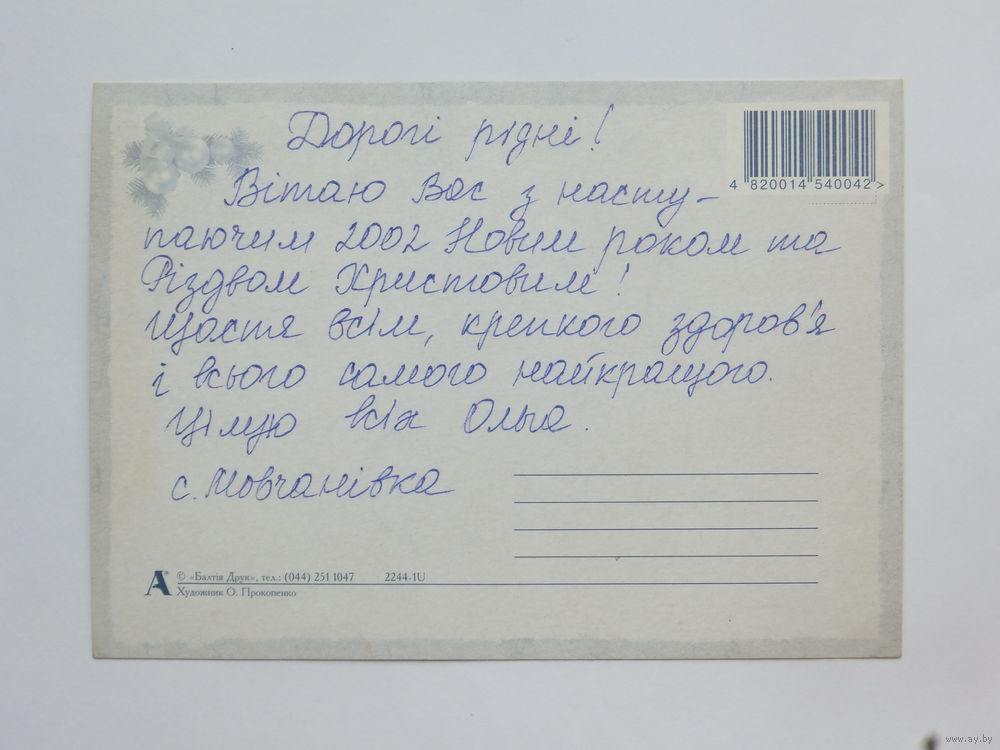 Дорогі рідні!
4 820014 540042 >
Вітаю Вас з насту-
паючим 2002 Новим роком та
Різдвом Христовим!
Щастя всім, крепкого здоров'я
і всього самого найкращого.
Цілую всіх Ольга.
с. Мовчанівка
А
© «Балтія Друк», тел.: (044) 251 1047 2244-1U
Художник О. Прокопенко
www.ay.by